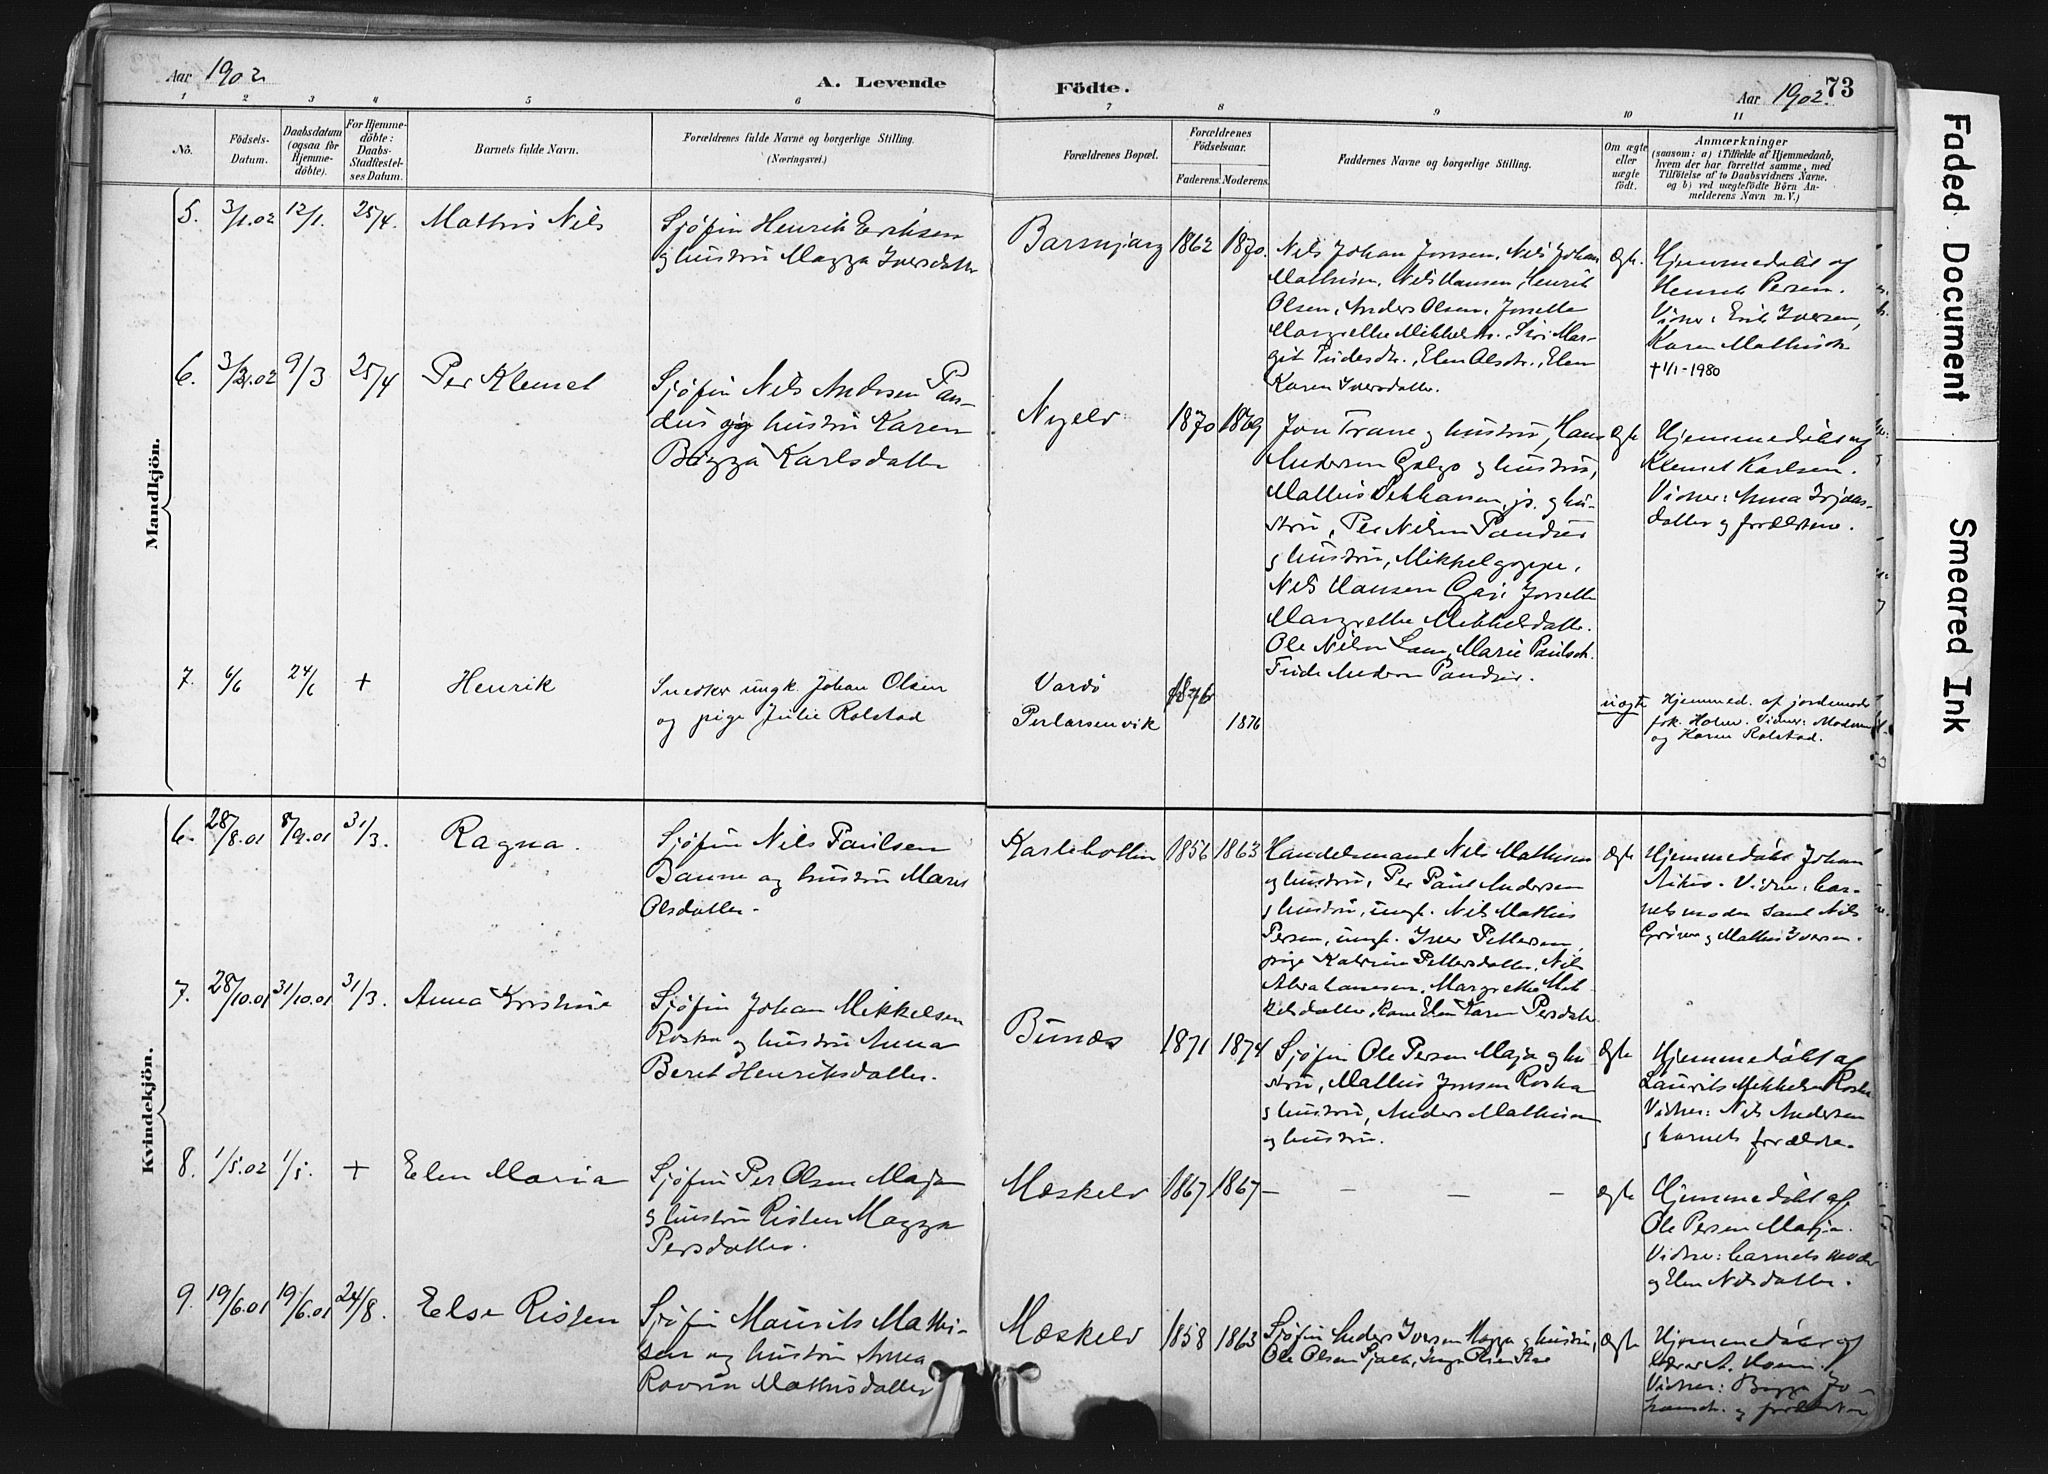 Aar 1902
A. Levende
Födte.
Aar 1902.
73
1 2 3 4 5 6 7 8 9 10 11
No.
Födsels-
Datum.
Daabsdatum
(ogsaa for
Hjemme-
döbte).
For Hjemme-
döbte:
Daabs-
Stadfestel-
ses Datum.
Barnets fulde Navn.
Forældrenes fulde Navne og borgerlige Stilling.
(Næringsvei.)
Forældrenes Bopæl.
Forældrenes
Födselsaar.
Faderens. Moderens.
Faddernes Navne og borgerlige Stilling.
Om ægte
eller
uægte
født.
Anmærkninger
(saasom: a) i Tilfælde af Hjemmedaab,
hvem der har forrettet samme, med
Tilföielse af to Daabsvidners Navne,
og b) ved uægtefödte Börn An-
melderens Navn m. V.)
Mandkjön.
5. 3/1.02 12/1. 25/4. Mathis Nils
Sjöfin Henrik Eriksen
og hustru Magga Iversdatter
1862 1870.
Nils Johan Jonsen, Nils Johan
Mathisen, Nils Hansen, Henrik
Olsen, Anders Olsen,
Margrethe Mikkelsdr. Siri Mar-
git, Elen Olsdr., Elen
Karen Iversdatter.
ægte.
Hjemmedöbt af
Henrik Persen.
Vidner: Erik Iversen,
Karen Mathisdr
+ 1/1-1980
6. 9/3 25/4 Per Klemet
Sjöfin Nils Andersen Pan-
dus og hustru Karen
Bigga Karlsdatter
Nyelv 1870 1869
Jon Trane og hustru, Hans
Andersen og hustru,
Mathis jr. og hu-
stru, Per Nilsen Pandus
og hustru, Mikkel
Nils Hansen
Margrethe Mikkelsdatter.
Ole Nilsen Marie Paulsdr.
Andersen Pandus.
ægte
Hjemmedöbt af
Klemet Karlsen.
Vidner: Anna
datter og forældrene.
7. 6/6 24/6 + Henrik
Snedker ungk. Johan Olsen
og pige Julie Rolstad
Vardö 1876
Perlarsenvik 1876
uægte
Hjemmed. af jordemod.
frk. Holm. Vidner: Moderen
og Karen Rolstad.
Kvindekjön.
6. 28/8.01 8/9.01 31/3. Ragna.
Sjöfin Nils Paulsen
Banne og hustru Marit
Olsdatter.
Karlebotten 1856 1863
Handelsmand Nils Mathisen
og hustru, Per Paul Andersen
og hustru, ungk. Nils Mathis
Persen, ungk. Iver Pettersen,
pige Katrine Pettersdatter, Nils
Abrahamsen, Margrethe Mik-
kelsdatter, Elen Karen Persdatter
ægte
Hjemmedöbt Johan
Aikio. Vidner: bar-
nets moder samt Nils
og Mathis Iversen.
7. 28/10.01 31/10.01 31/3. Anna Kristine
Sjöfin Johan Mikkelsen
Roska og hustru Anna
Beret Henriksdatter.
Bunæs 1871 1874
Sjöfin Ole Persen Maja og hu-
stru, Mathis Jonsen Roska
og hustru, Anders Mathisen
og hustru.
ægte
Hjemmedöbt af
Laurits Mikkelsen Roska
Vidner: Nils Andersen
og barnets forældre.
8. 1/5.02 1/5. + Elen Maria
Sjöfin Per Olsen Maja
og hustru Risten Magga
Persdatter.
Mæskelv 1867 1867 – – – –
ægte
Hjemmedöbt af
Ole Persen Maja.
Vidner: barnets moder
og Elen Nilsdatter.
9. 19/6.01 19/6.01 24/8. Else Risten
Sjöfin Maurits Mathi-
sen og hustru Anna
Mathisdatter
Mæskelv 1858 1863
Sjöfin Anders Iversen Magga og hustru,
Ole Olsen
ægte
Hjemmedöbt af
Vidner: Bigga Jo-
hansdr. og forældrene
Faded Document
Smeared Ink